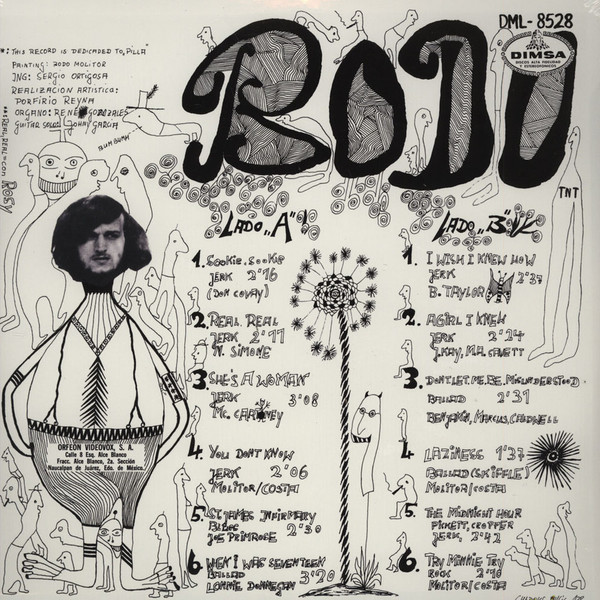 DML-8528
DIMSA
DISCOS ALTA FIDELIDAD
Y ESTEREOFONICOS
BODO
*: THIS RECORD IS DEDICADED TO "PILLA"
PAINTING: BODO MOLITOR
ING: SERGIO ORTIGOSA
REALIZACION ARTISTICA:
PORFIRIO REYNA
ORGANO: RENE GONZALES
GUITAR SOLOS: JOHNY GARCIA
BUM BUMM
**: REAL, REAL = CON
ROSY
TNT
LADO "A"!
1. SOOKIE. SOOKIE
JERK 2'16
(DON COVAY)
2. REAL. REAL
JERK 2'11
N. SIMONE
3 SHE'S A WOMAN
JERK 3'08
MC. CARTNEY
4. YOU DONT KNOW
JERK 2'06
MOLITOR/COSTA
5. ST. JAMES INFIRMARY
BLUES 2'30
JOE PRIMROSE
6. WEN I WAS SEVENTEEN
BALLAD 3'20
LONNIE DONNEGAN
LADO "B"
1. I WISH I KNEW HOW
JERK 2'37
B. TAYLOR
2. A GIRL I KNEW
JERK 2'24
J. KAY, M.A. GVETT
3. DONT. LET. ME. BE. MISUNDERSTOOD.
BALLAD 2'31
BENJAMIN, MARCUS, CALDWELL
4 LAZINESS 1'37
BALLAD (SKIFFLE)
MOLITOR/COSTA
5. THE MIDNIGHT HOUR
PICKETT, CROPPER
JERK, 2'42
6. TRY MINNIE TRY
ROCK 2'10
MOLITOR/COSTA
ORFEON VIDEOVOX, S. A.
Calle 8 Esq. Alce Blanco
Fracc. Alce Blanco, 2a. Sección
Naucalpan de Juárez, Edo. de México.